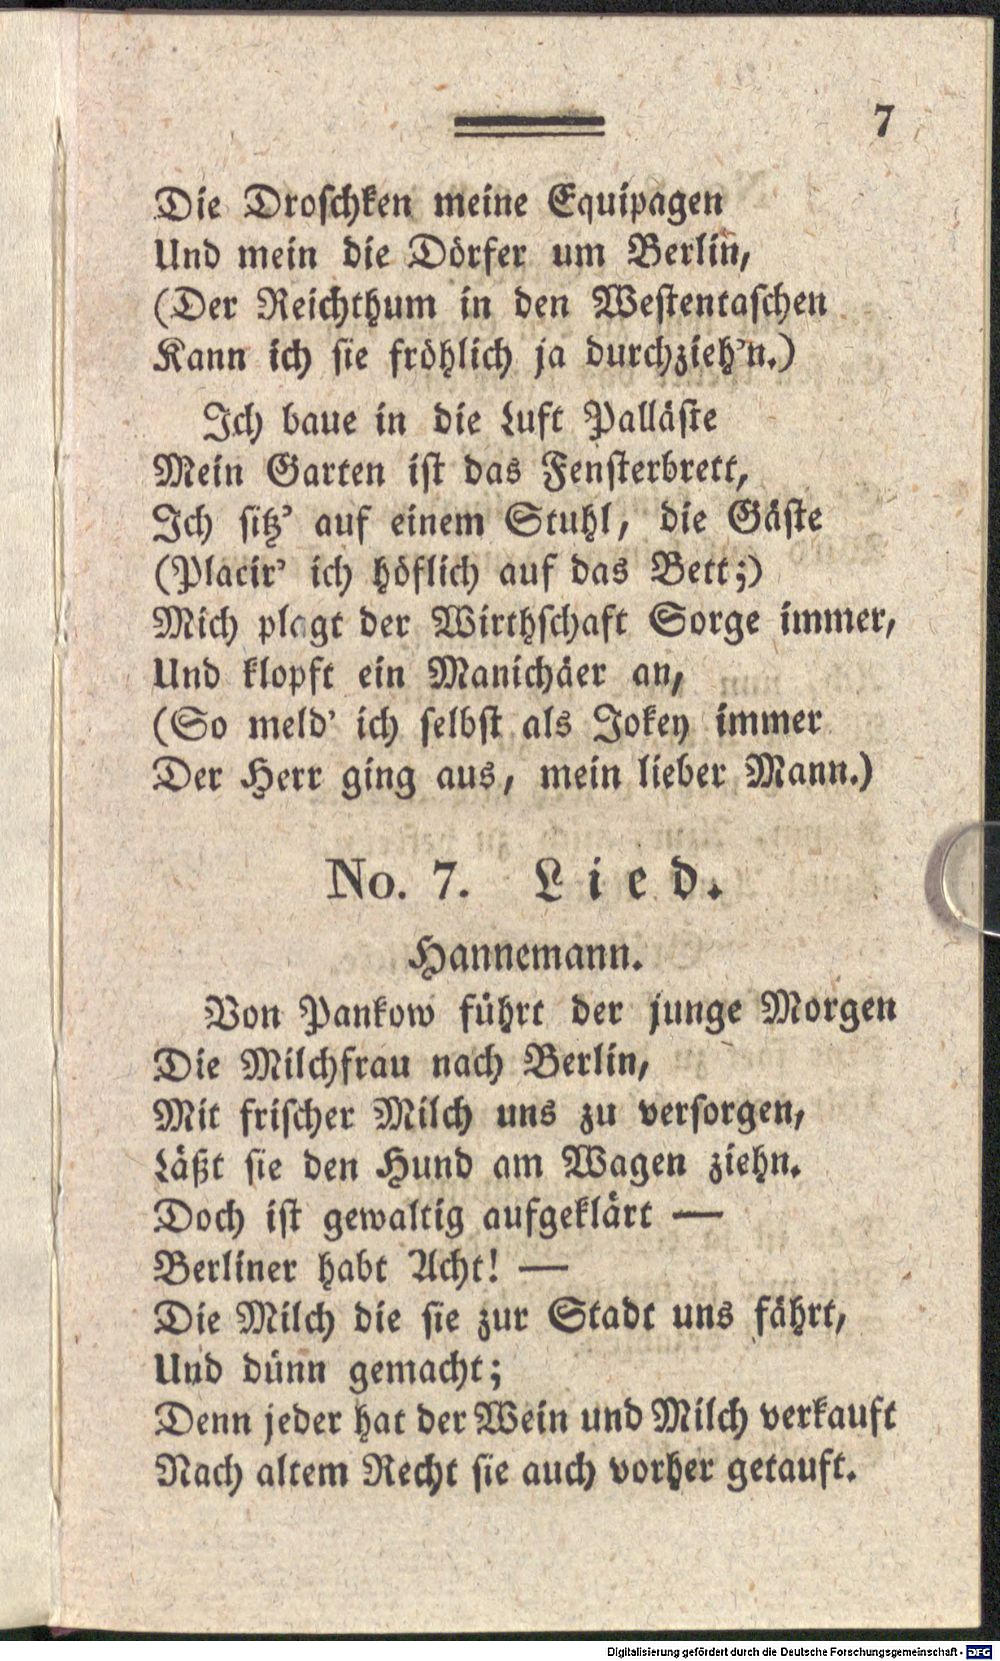 7
Die Droschken meine Equipagen
Und mein die Dörfer um Berlin,
(Der Reichthum in den Westentaschen
Kann ich sie fröhlich ja durchzieh'n.)
Ich baue in die Luft Palläste
Mein Garten ist das Fensterbrett,
Ich sitz' auf einem Stuhl, die Gäste
(Placir' ich höflich auf das Bett;)
Mich plagt der Wirthschaft Sorge immer,
Und klopft ein Manichäer an,
(So meld' ich selbst als Jokey immer
Der Herr ging aus, mein lieber Mann.)
No. 7. Lied.
Hannemann.
Von Pankow führt der junge Morgen
Die Milchfrau nach Berlin,
Mit frischer Milch uns zu versorgen,
Läßt sie den Hund am Wagen ziehn.
Doch ist gewaltig aufgeklärt —
Berliner habt Acht! —
Die Milch die sie zur Stadt uns fährt,
Und dünn gemacht;
Denn jeder hat der Wein und Milch verkauft
Nach altem Recht sie auch vorher getauft.
Digitalisierung gefördert durch die Deutsche Forschungsgemeinschaft - DFG